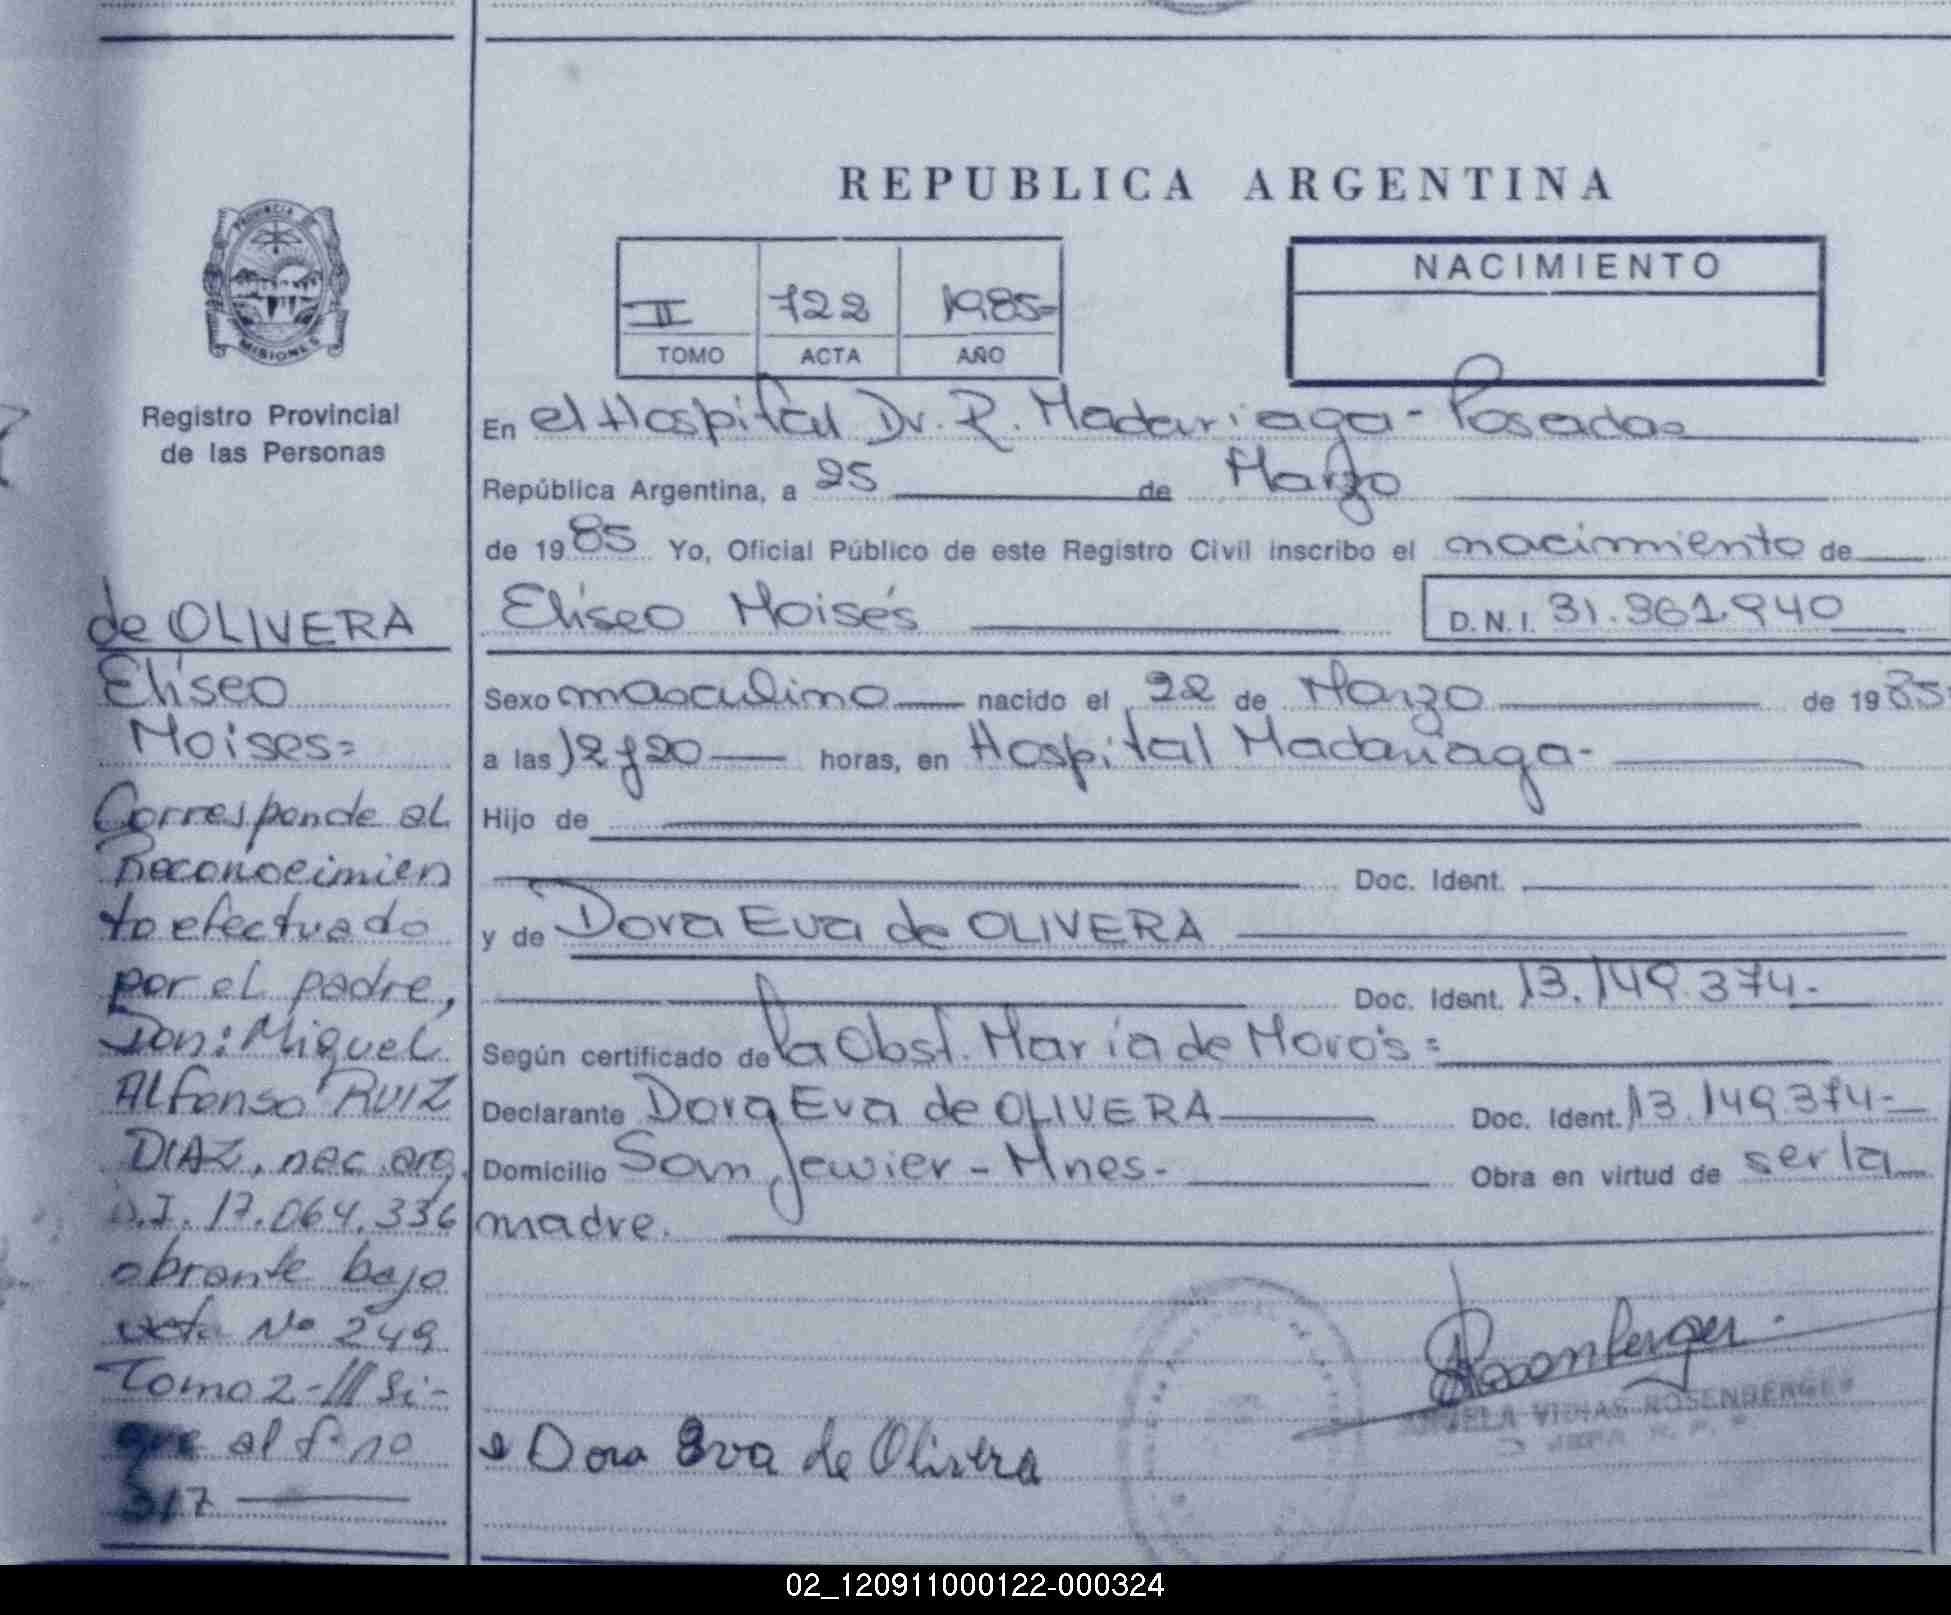 REPUBLICA ARGENTINA
PROVINCIA DE
MISIONES
Registro Provincial
de las Personas
II 722 1985=
TOMO ACTA AÑO
NACIMIENTO
En el Hospital Dr. R. Madariaga - Posadas
República Argentina, a 25 de Marzo
de 1985 Yo, Oficial Público de este Registro Civil inscribo el nacimiento de
Eliseo Moisés D.N.I. 31.361.940
Sexo masculino nacido el 22 de Marzo de 1985
a las 12 y 20 horas, en Hospital Madariaga-
Hijo de
Doc. Ident.
y de Dora Eva de OLIVERA
Doc. Ident. 13.149.374-
Según certificado de la Obst. María de
Declarante Dora Eva de OLIVERA Doc. Ident. 13.149.374-
Domicilio San Javier - Mnes- Obra en virtud de ser la
madre.
Dora Eva de Olivera
Rosenberger
VIÑAS ROSENBERGER
de OLIVERA
Eliseo
Moises=
Corresponde al
Reconocimien
to efectuado
por el padre,
Don: Miguel
Alfonso RUIZ
DIAZ, nac. arg.
D.I. 17.064.336
obrante bajo
acta Nº 249
Tomo 2-/// Si-
gue al fº no
317
02_120911000122-000324